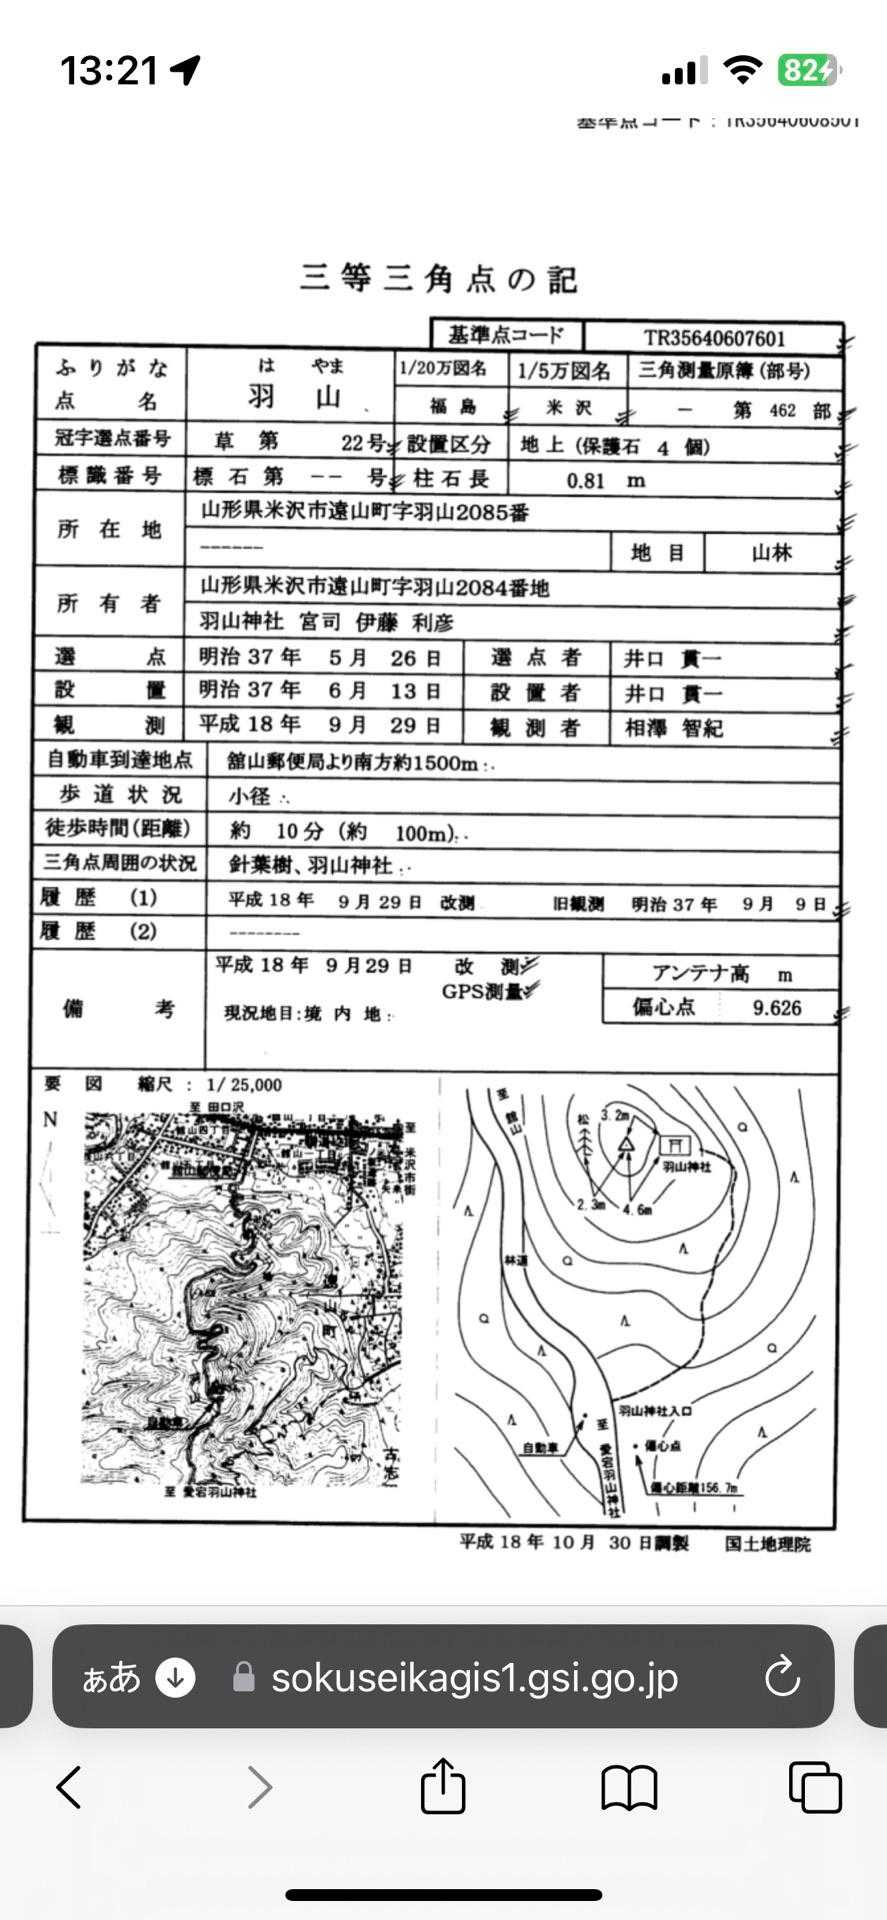 13:21
82
基準点コード：TR35640608501
三等三角点の記
基準点コード TR35640607601
ふりがな はやま 1/20万図名 1/5万図名 三角測量原簿(部号)
点名 羽山 福島 米沢 － 第 462 部
冠字選点番号 草第 22号 設置区分 地上(保護石 4 個)
標識番号 標石第 -- 号 柱石長 0.81 m
所在地 山形県米沢市遠山町字羽山2085番
------ 地目 山林
所有者 山形県米沢市遠山町字羽山2084番地
羽山神社 宮司 伊藤 利彦
選点 明治 37 年 5 月 26 日 選点者 井口 貫一
設置 明治 37 年 6 月 13 日 設置者 井口 貫一
観測 平成 18 年 9 月 29 日 観測者 相澤 智紀
自動車到達地点 舘山郵便局より南方約1500m
歩道状況 小径
徒歩時間(距離) 約 10分 (約 100m)
三角点周囲の状況 針葉樹、羽山神社
履歴 (1) 平成 18 年 9 月 29 日 改測 旧観測 明治 37 年 9 月 9 日
履歴 (2) --------
備考 平成 18 年 9 月29 日 改測 アンテナ高 m
GPS測量 偏心点 9.626
現況地目：境内地
要図 縮尺：1/25,000
N
至 田口沢
舘山四丁目
至 米沢市街
遠山町
自動車
古志
至 愛宕羽山神社
至 舘山
松
3.2m
羽山神社
2.3m
4.6m
林道
羽山神社入口
自動車
至 愛宕羽山神社
偏心点
偏心距離156.7m
平成 18 年 10 月 30 日調製 国土地理院
ぁあ
sokuseikagis1.gsi.go.jp